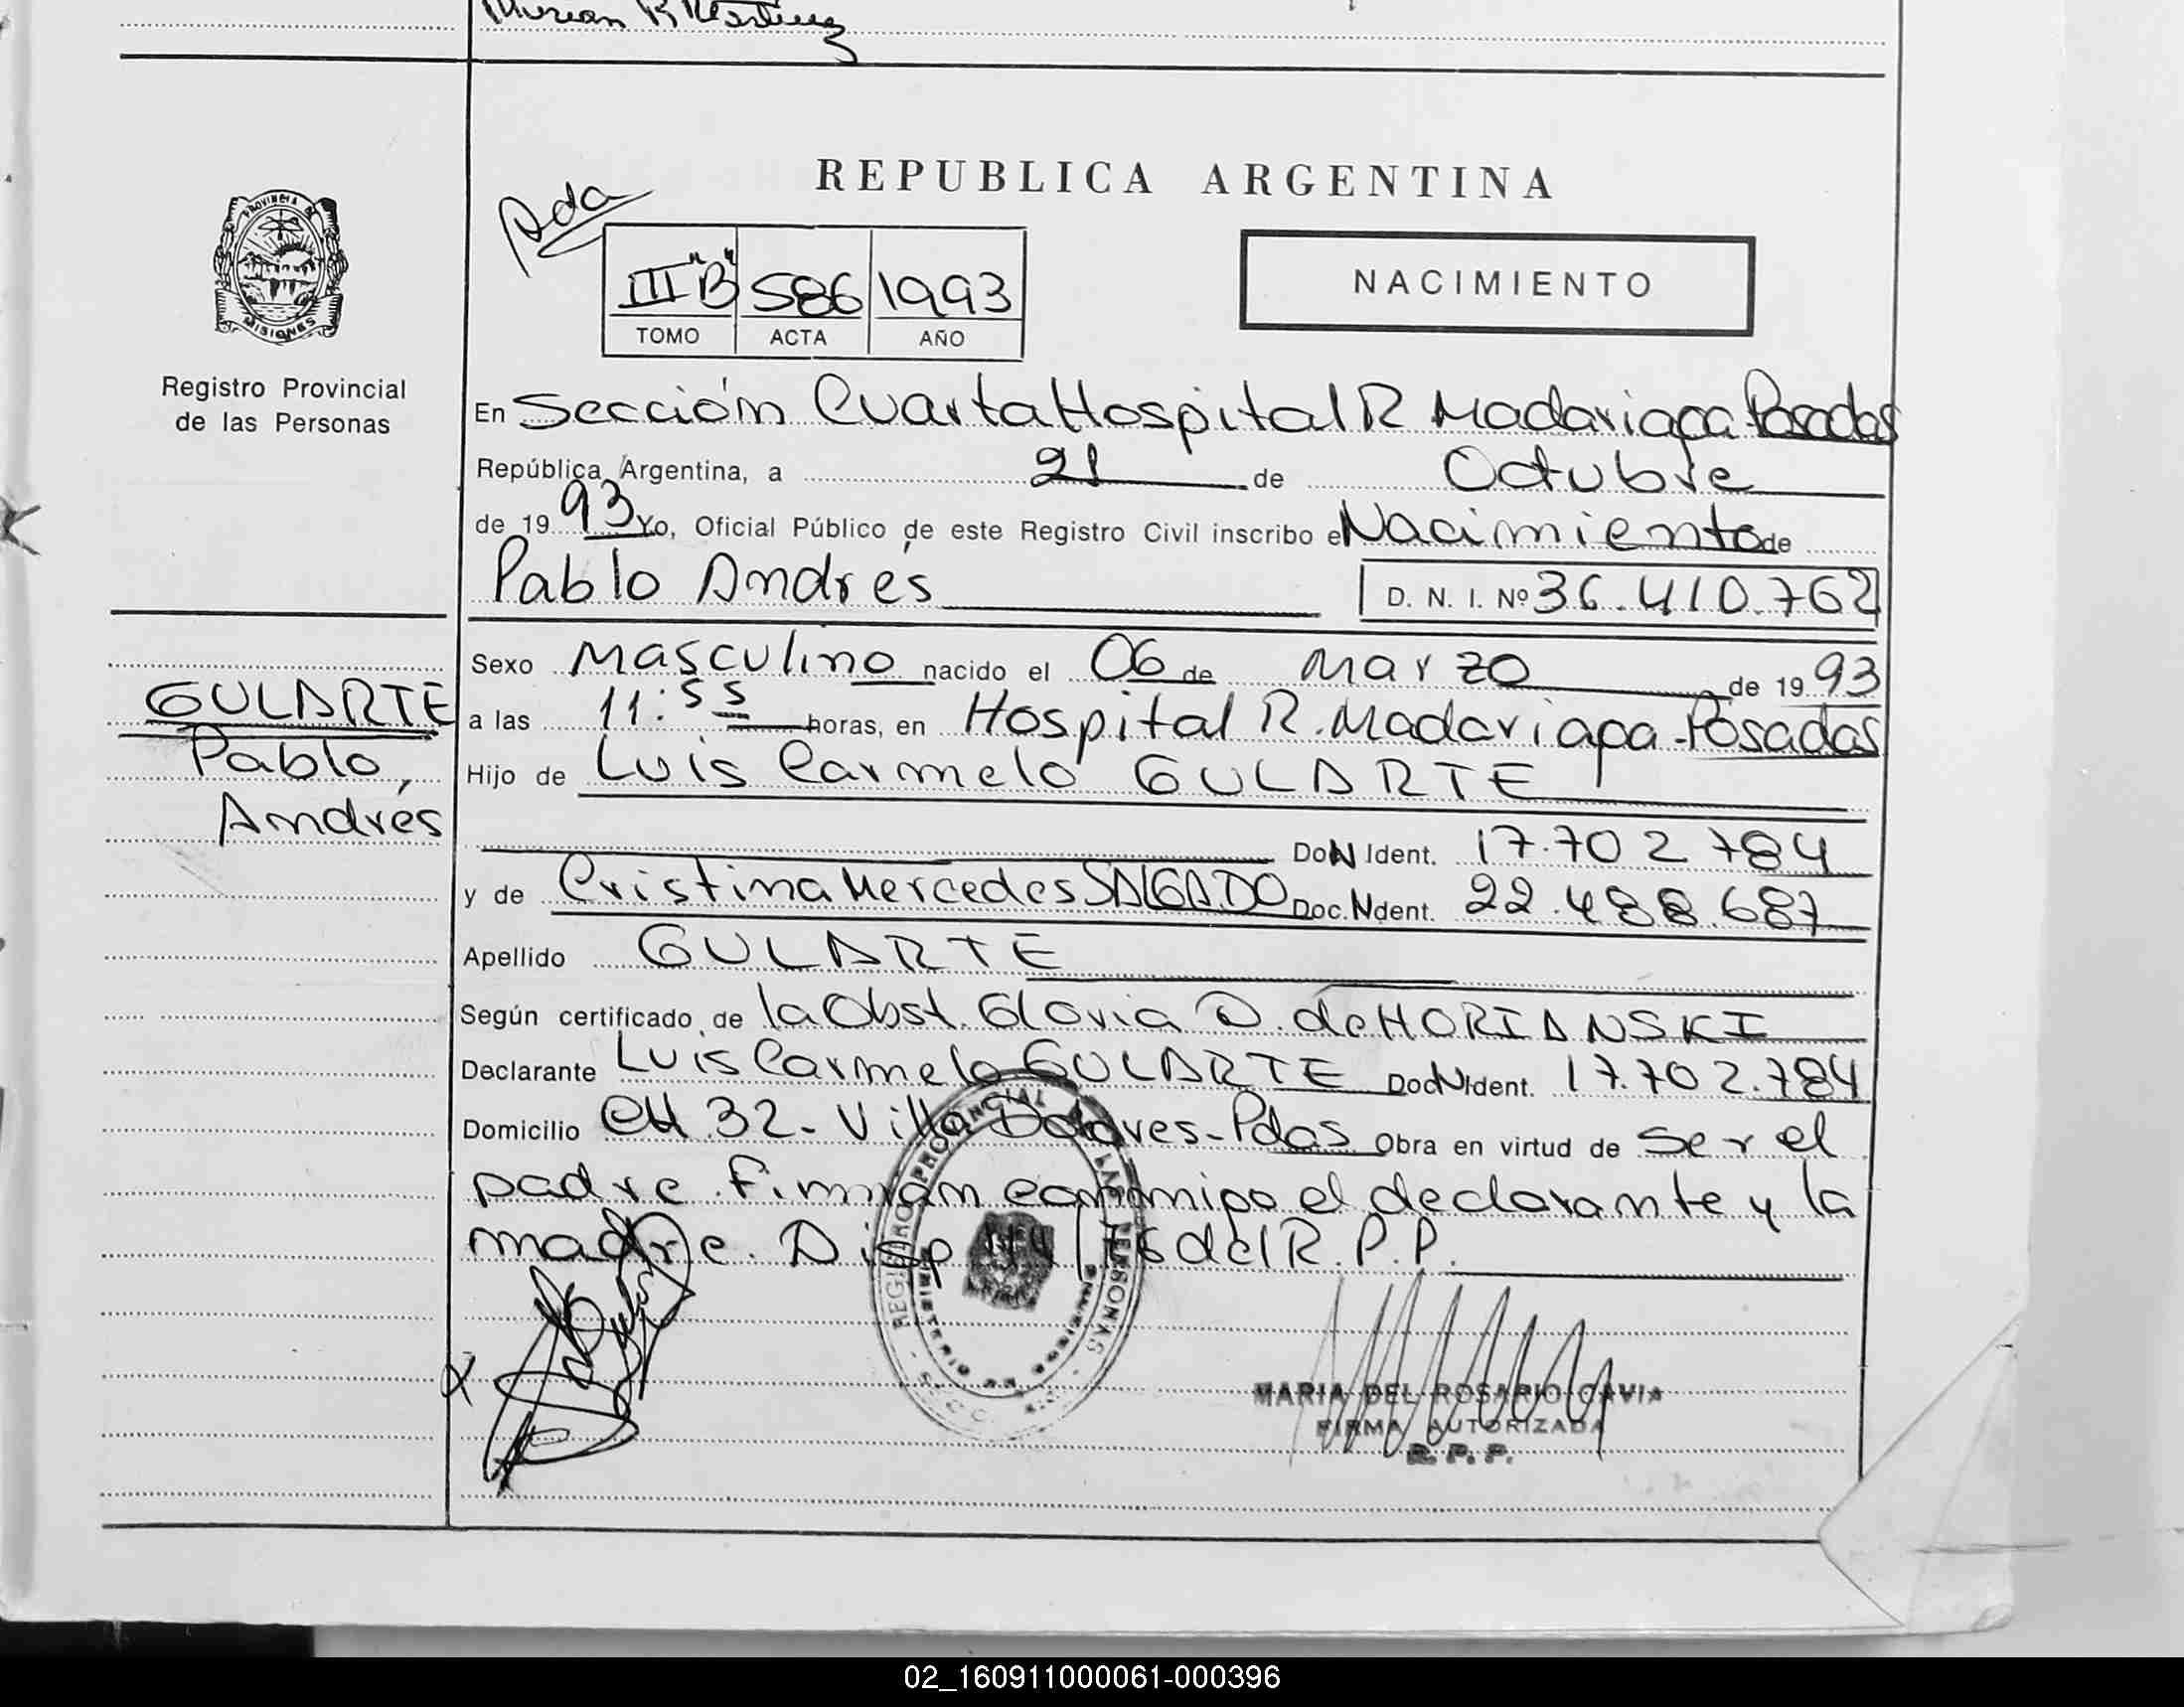 REPUBLICA ARGENTINA
PROVINCIA DE
MISIONES
Registro Provincial
de las Personas
Pda
III "B" 586 1993
TOMO ACTA AÑO
NACIMIENTO
En Sección Cuarta Hospital R Madariaga Posadas
República Argentina, a 21 de Octubre
de 1993 Yo, Oficial Público de este Registro Civil inscribo el Nacimiento de
Pablo Andrés D. N. I. Nº 36.410.762
Sexo Masculino nacido el 06 de Marzo de 1993
GULARTE
Pablo,
Andrés
a las 11:55 horas, en Hospital R. Madariaga - Posadas
Hijo de Luis Carmelo GULARTE
Doc N Ident. 17.702.784
y de Cristina Mercedes SALGADO Doc. N Ident. 22.488.687
Apellido GULARTE
Según certificado de la Obst. Gloria D. de HORIANSKI
Declarante Luis Carmelo GULARTE Doc N Ident. 17.702.784
Domicilio CH 32 - Villa Dolores - Pdas Obra en virtud de ser el
padre. Firman conmigo el declarante y la
madre. Disp 44/76 del R.P.P.
REGISTRO PROVINCIAL DE LAS PERSONAS
MINISTERIO DE GOBIERNO
MARIA DEL ROSARIO CAVIA
FIRMA AUTORIZADA
R. P. P.
02_160911000061-000396